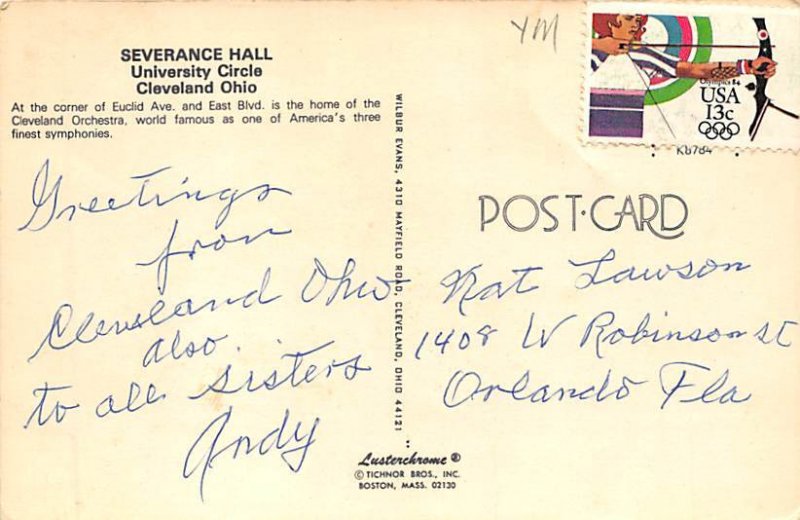 SEVERANCE HALL
University Circle
Cleveland Ohio
At the corner of Euclid Ave. and East Blvd. is the home of the
Cleveland Orchestra, world famous as one of America's three
finest symphonies.
Greetings
from
Cleveland Ohio
also
to all sisters
Andy
WILBUR EVANS, 4310 MAYFIELD ROAD, CLEVELAND, OHIO 44121
Lusterchrome ®
© TICHNOR BROS., INC.
BOSTON, MASS. 02130
YM
Olympics 84
USA
13c
K8784
POST·CARD
Nat Lawson
1408 W Robinson st
Orlando Fla